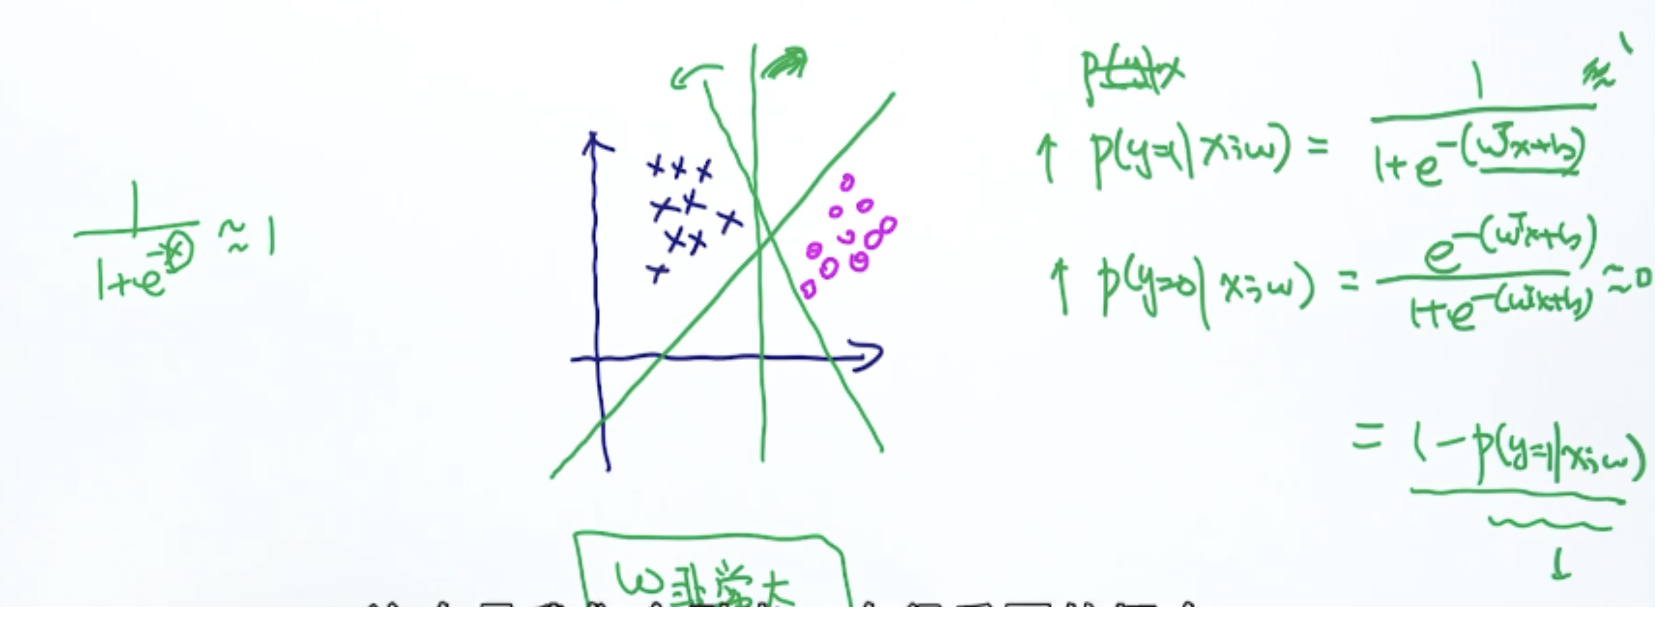 1/(1+e^{-x}) ≈ 1
p(y)x
↑ p(y=1|x;w) = 1/(1+e^{-(w^Tx+b)}) ≈ 1
↑ p(y=0|x;w) = e^{-(w^Tx+b)}/(1+e^{-(w^Tx+b)}) ≈ 0
= 1-p(y=1|x;w)
1
w非常大